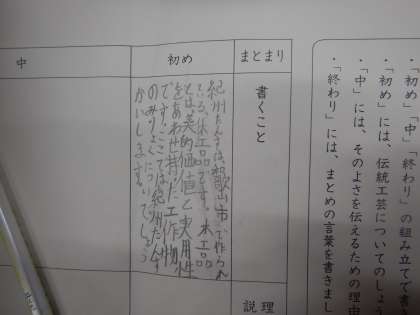 ・「初め」「中」「終わり」の組み立てで書
・「初め」には、伝統工芸についてのしょう
・「中」には、そのよさを伝えるための理由
・「終わり」には、まとめの言葉を書きまし
まとまり
初め
中
書くこと
紀州たんすは、和歌山市で作られ
ている、木工品です。木工品
とは、美的価値と実用性
をあわせ持った工作物
です。ここでは紀州たんす
のみりょくについてしょう
かいします。
説理